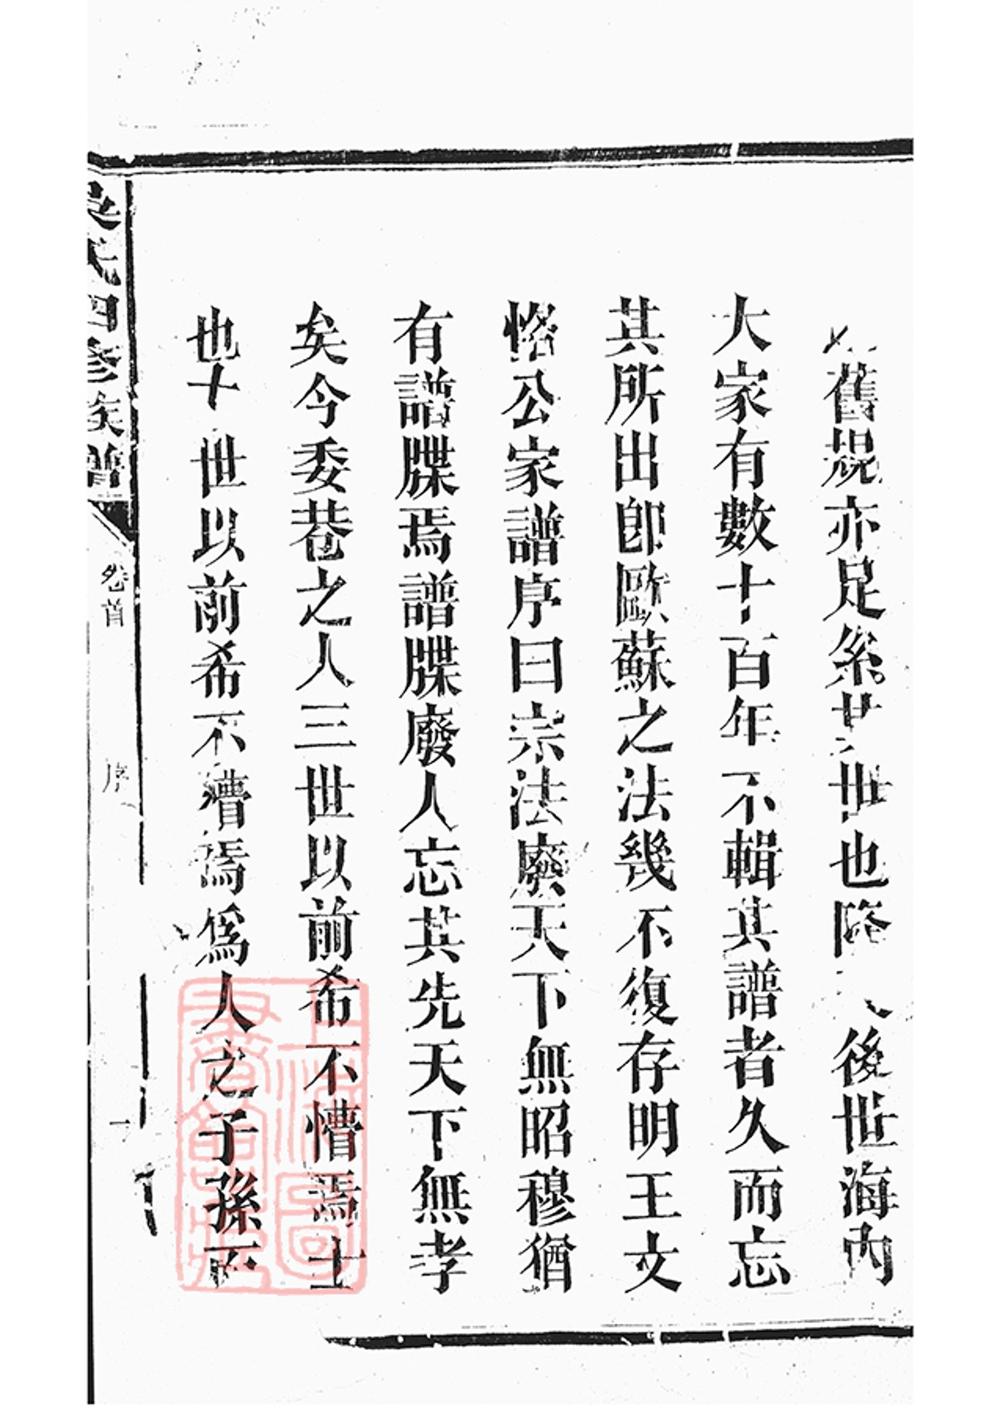 舊規亦足系廿世也降後世海內
大家有數十百年不輯其譜者久而忘
其所出卽歐蘇之法幾不復存明王文
恪公家譜序曰宗法廢天下無昭穆猶
有譜牒焉譜牒廢人忘其先天下無孝
矣今委巷之人三世以前希不懵焉士
也十世以前希不懵焉爲人之子孫而
吳氏四修族譜
卷首
序
一
上海圖書館藏